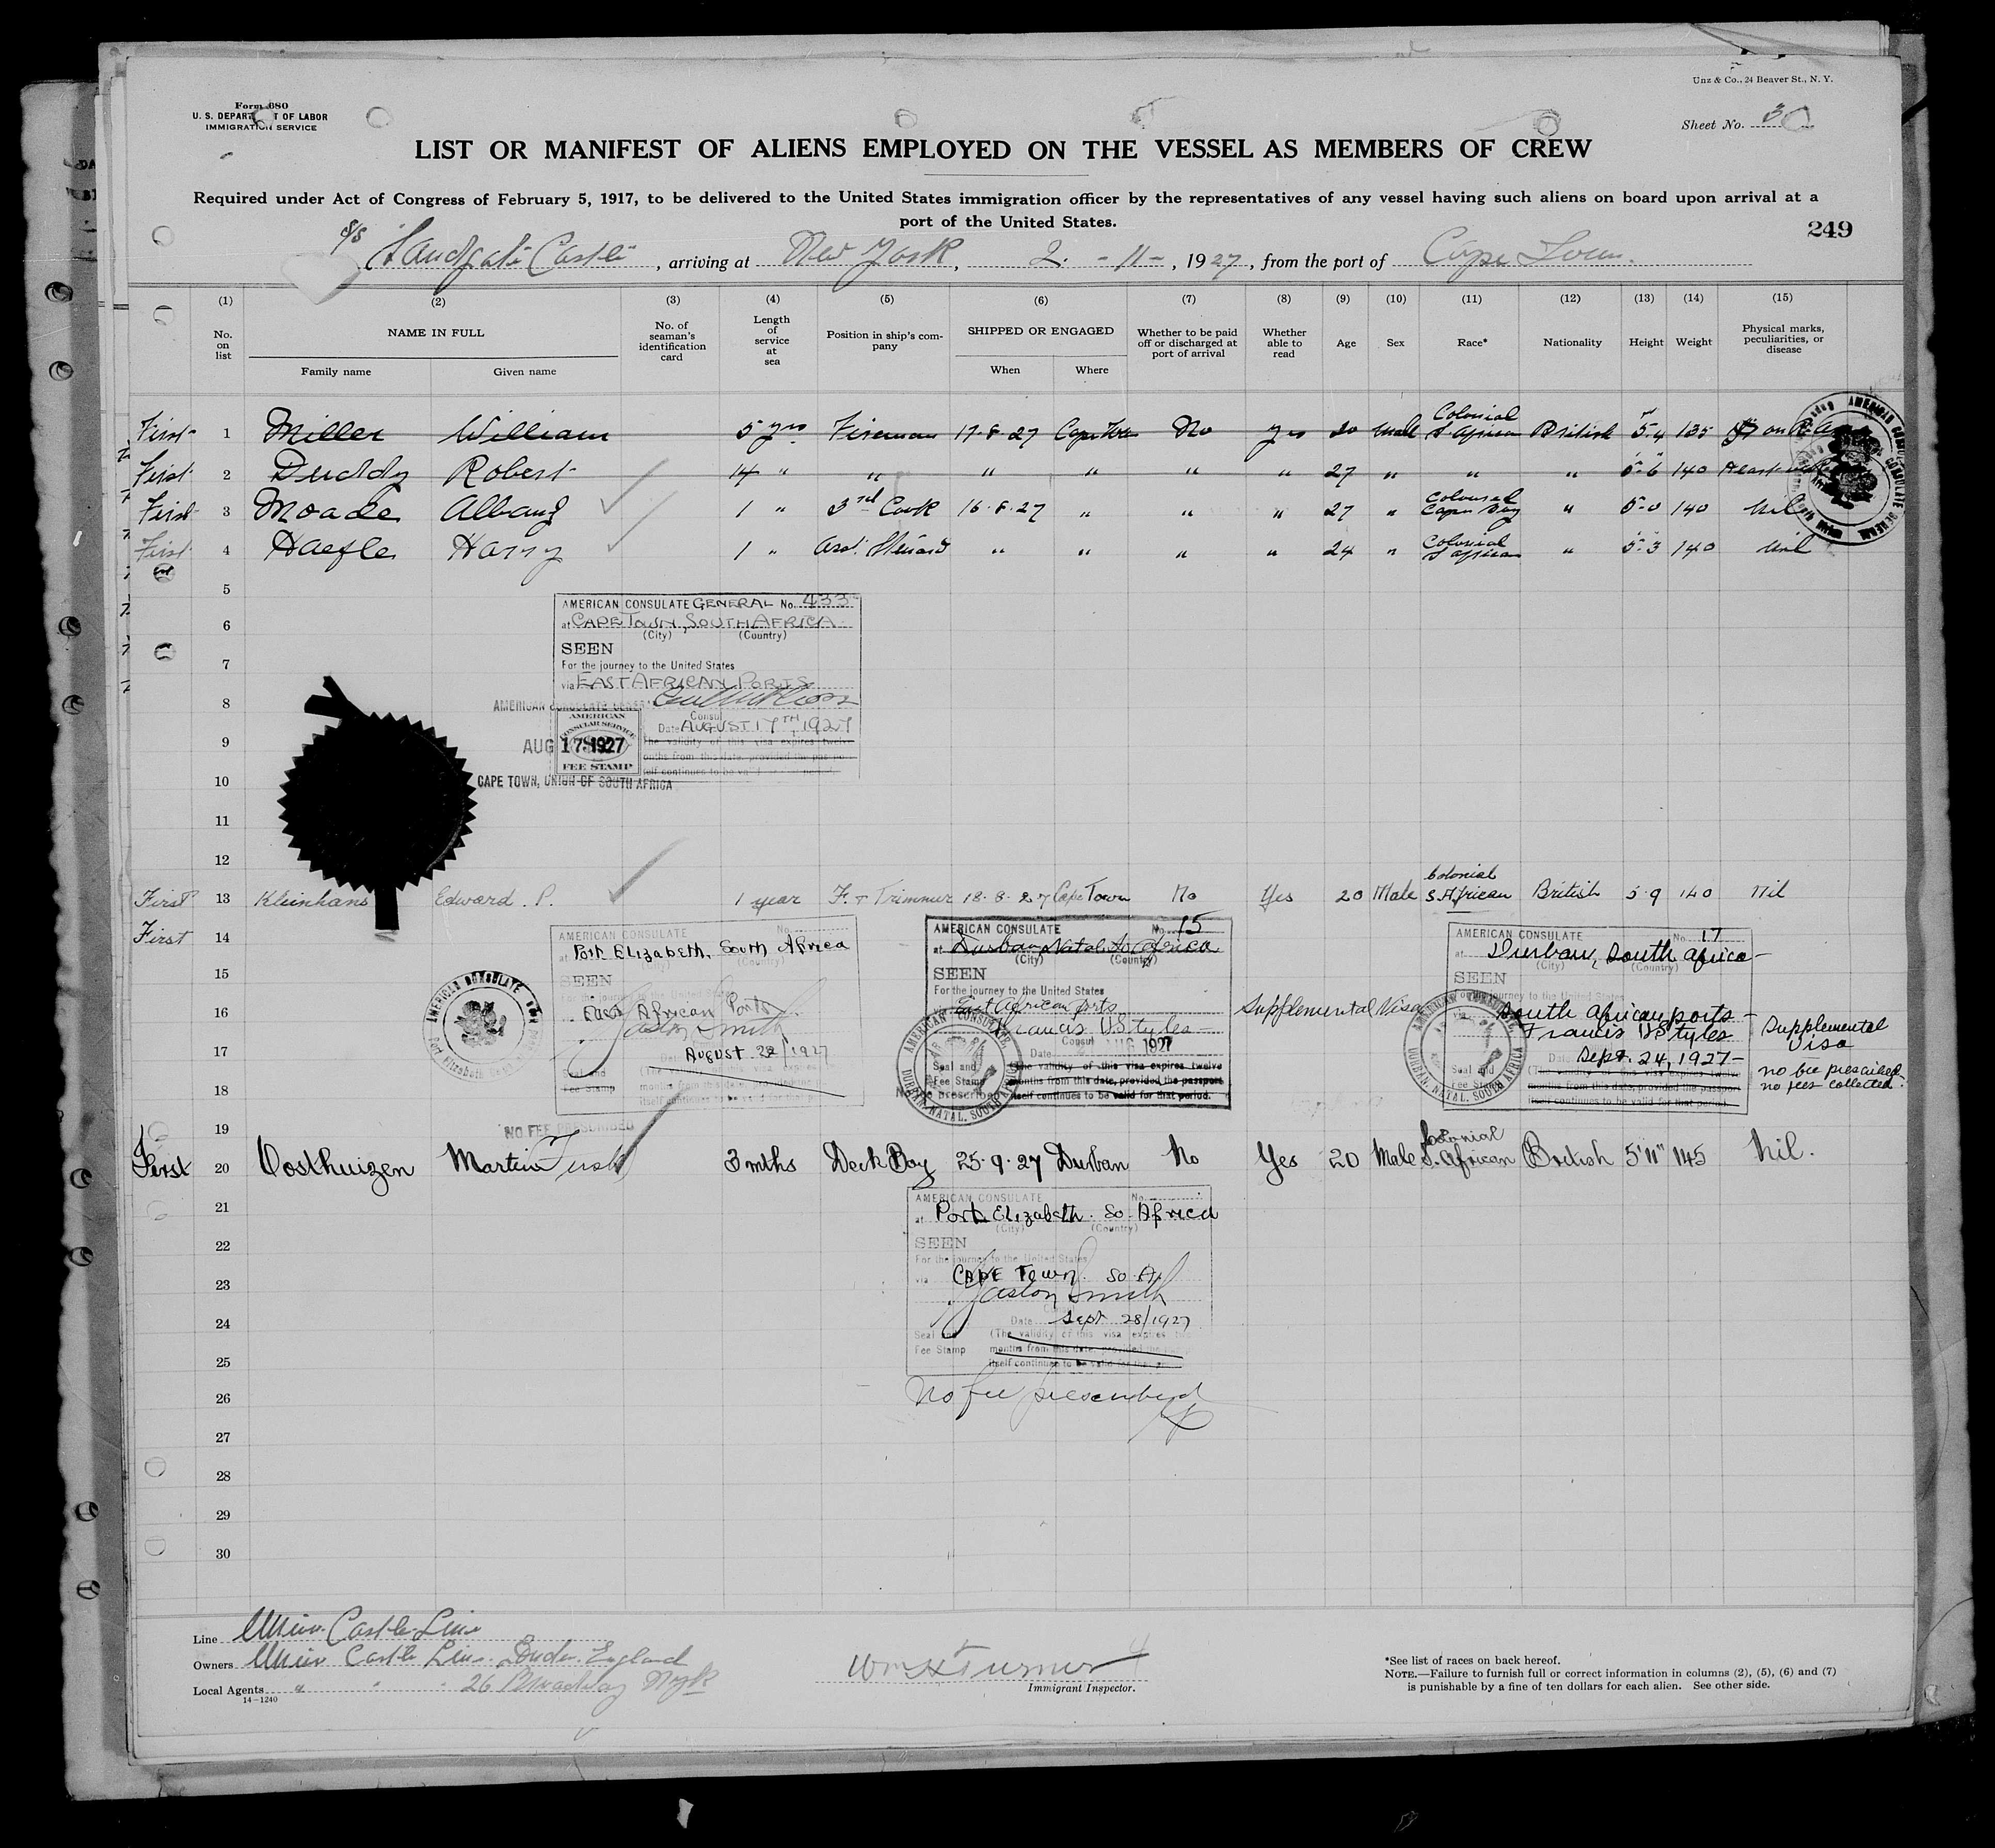 Unz & Co., 24 Beaver St., N. Y.
Form 680
U. S. DEPARTMENT OF LABOR
IMMIGRATION SERVICE
Sheet No. 3
LIST OR MANIFEST OF ALIENS EMPLOYED ON THE VESSEL AS MEMBERS OF CREW
Required under Act of Congress of February 5, 1917, to be delivered to the United States immigration officer by the representatives of any vessel having such aliens on board upon arrival at a
port of the United States.
249
S/S Sandgate Castle, arriving at New York, 2. - 11 -, 1927, from the port of Cape Town.
(1) (2) (3) (4) (5) (6) (7) (8) (9) (10) (11) (12) (13) (14) (15)
No. on list NAME IN FULL Family name Given name No. of seaman's identification card Length of service at sea Position in ship's company SHIPPED OR ENGAGED When Where Whether to be paid off or discharged at port of arrival Whether able to read Age Sex Race* Nationality Height Weight Physical marks, peculiarities, or disease
First 1 Miller William 5 yrs Fireman 17-8-27 Cape Town No yes 20 male Colonial S African British 5.4 135 on R.
First 2 Duddy Robert 14 " " " " " " 27 " " " 5.6 140
First 3 Moade Albang 1 " 3rd Cook 16-8-27 " " " 27 " Coloured Cape Boy " 5-0 140 nil
First 4 Haefle Harry 1 " Asst. Steward " " " " 24 " Colonial S African " 5.3 140 nil
5
AMERICAN CONSULATE GENERAL No. 433
6
at CAPE TOWN, SOUTH AFRICA
(City) (Country)
SEEN
7
For the journey to the United States
via EAST AFRICAN PORTS
8
AMERICAN CONSULATE GENERAL
Consul
Date AUGUST 17TH, 1927
AMERICAN CONSULAR SERVICE
FEE STAMP
9
AUG 17 1927
The validity of this visa expires twelve
10
CAPE TOWN, UNION OF SOUTH AFRICA
11
12
First 13 Kleinhans Edward. P. 1 year F. & Trimmer 18-8-27 Cape Town No Yes 20 Male Colonial S. African British 5.9 140 Nil
First 14
AMERICAN CONSULATE
at Port Elizabeth, South Africa
(City) (Country)
SEEN
For the journey to the United States
East African Ports
Gaston Smith
Date August 22/1927
Seal and
Fee Stamp
NO FEE PRESCRIBED
AMERICAN CONSULATE No. 15
at Durban, Natal, So. Africa
(City) (Country)
SEEN
For the journey to the United States
East African Ports
Francis H Styles
Consul
Date AUG 1927
Seal and
Fee Stamp
The validity of this visa expires twelve
months from this date, provided the passport
itself continues to be valid for that period.
AMERICAN CONSULATE
DURBAN, NATAL, SOUTH AFRICA
Supplemental Visa
AMERICAN CONSULATE No. 17
at Durban, South Africa -
(City) (Country)
SEEN
South African ports -
Francis H Styles
Date Sept. 24, 1927 -
Seal and
Fee Stamp
(The validity of this visa expires twelve
months from this date, provided the passport
itself continues to be valid for that period.
Supplemental
Visa
no fee prescribed.
no fees collected.
15
16
17
18
19
First 20 Oosthuizen Martin 3 mths Deck Boy 25-9-27 Durban No Yes 20 Male Colonial S. African British 5'11" 145 Nil.
21
AMERICAN CONSULATE No.
at Port Elizabeth. So. Africa
(City) (Country)
22
SEEN
For the journey to the United States
23
via Cape Town. So. Af
Gaston Smith
24
Date Sept 28/1927
Seal and
Fee Stamp
(The validity of this visa expires
months from this date, provided the
25
itself continues to be valid for
26
No fee prescribed
27
28
29
30
Line Union Castle Line
Owners Union Castle Line. London. England
Local Agents " " " 26 Broadway N.Y.
14-1240
Wm H Turner 4
Immigrant Inspector.
*See list of races on back hereof.
NOTE.—Failure to furnish full or correct information in columns (2), (5), (6) and (7)
is punishable by a fine of ten dollars for each alien. See other side.